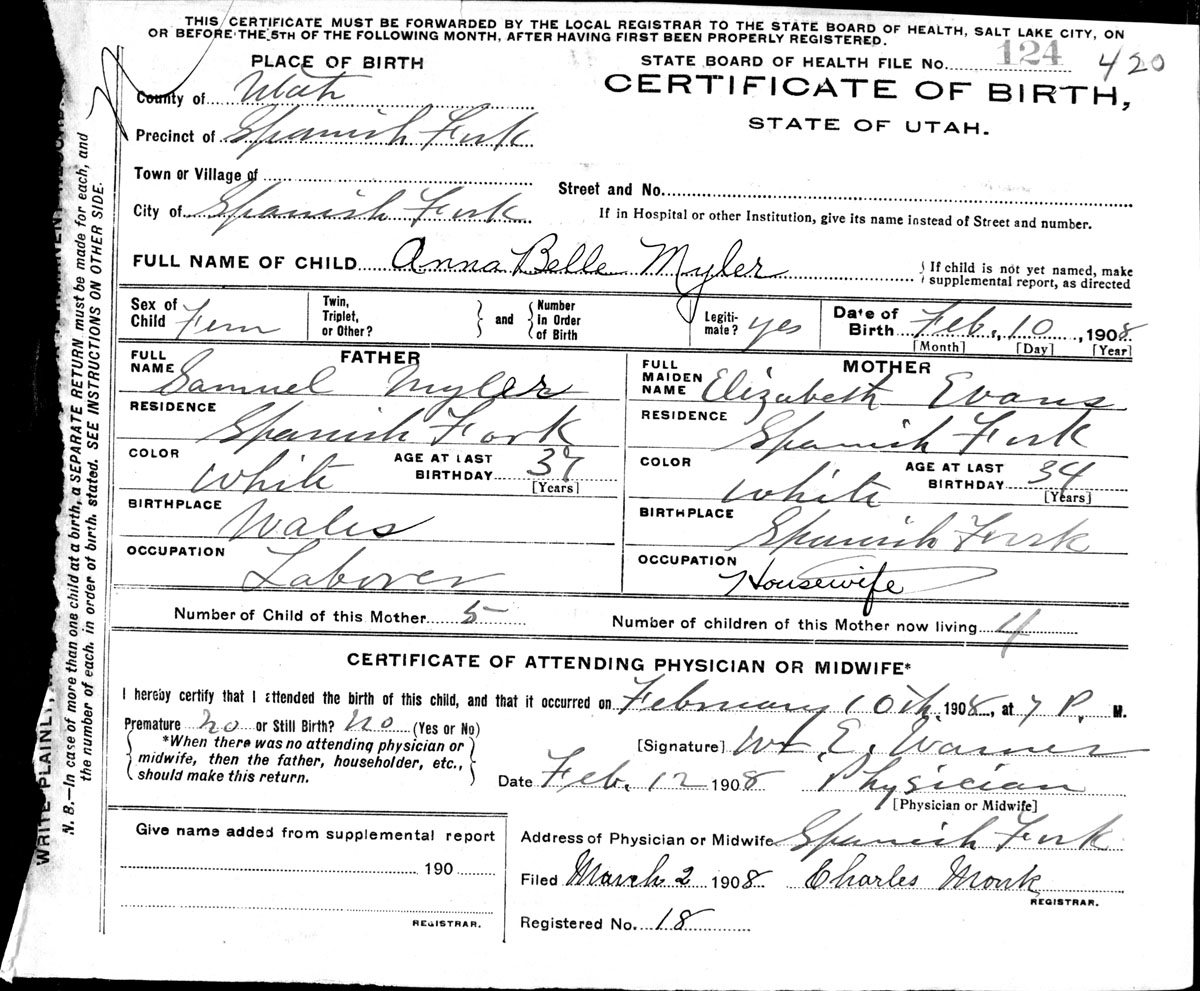 THIS CERTIFICATE MUST BE FORWARDED BY THE LOCAL REGISTRAR TO THE STATE BOARD OF HEALTH, SALT LAKE CITY, ON
OR BEFORE THE 5TH OF THE FOLLOWING MONTH, AFTER HAVING FIRST BEEN PROPERLY REGISTERED.
PLACE OF BIRTH
STATE BOARD OF HEALTH FILE No. 124 420
County of Utah
CERTIFICATE OF BIRTH,
Precinct of Spanish Fork
STATE OF UTAH.
Town or Village of
Street and No.
City of Spanish Fork
If in Hospital or other Institution, give its name instead of Street and number.
FULL NAME OF CHILD Anna Belle Myler
If child is not yet named, make
supplemental report, as directed
Sex of Child Fem
Twin, Triplet, or Other?
and
Number in Order of Birth
Legiti-mate? yes
Date of Birth Feb. 10, 1908
[Month] [Day] [Year]
FATHER
FULL NAME Samuel Myler
RESIDENCE Spanish Fork
COLOR White
AGE AT LAST BIRTHDAY 37
[Years]
BIRTHPLACE Wales
OCCUPATION Laborer
MOTHER
FULL MAIDEN NAME Elizabeth Evans
RESIDENCE Spanish Fork
COLOR White
AGE AT LAST BIRTHDAY 34
[Years]
BIRTHPLACE Spanish Fork
OCCUPATION Housewife
Number of Child of this Mother 5
Number of children of this Mother now living 4
CERTIFICATE OF ATTENDING PHYSICIAN OR MIDWIFE*
I hereby certify that I attended the birth of this child, and that it occurred on February 10th, 1908, at 7 P. M.
Premature no or Still Birth? no (Yes or No)
*When there was no attending physician or
midwife, then the father, householder, etc.,
should make this return.
[Signature] Wm E. Warner
Date Feb. 12 1908 Physician
[Physician or Midwife]
Give name added from supplemental report
190
REGISTRAR.
Address of Physician or Midwife Spanish Fork
Filed March 2 1908 Charles Monk
REGISTRAR.
Registered No. 18
WRITE PLAINLY,
N. B.—In case of more than one child at a birth, a SEPARATE RETURN must be made for each, and
the number of each, in order of birth, stated. SEE INSTRUCTIONS ON OTHER SIDE.